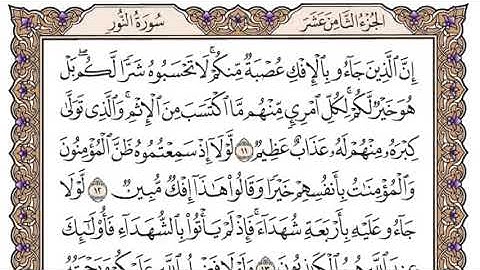 الجزء الثامن عشر
سورة النور
إِنَّ الَّذِينَ جَاءُو بِالْإِفْكِ عُصْبَةٌ مِّنكُمْ ۚ لَا تَحْسَبُوهُ شَرًّا لَّكُم ۖ بَلْ
هُوَ خَيْرٌ لَّكُمْ ۚ لِكُلِّ امْرِئٍ مِّنْهُم مَّا اكْتَسَبَ مِنَ الْإِثْمِ ۚ وَالَّذِي تَوَلَّىٰ
كِبْرَهُ مِنْهُمْ لَهُ عَذَابٌ عَظِيمٌ ١١ لَّوْلَا إِذْ سَمِعْتُمُوهُ ظَنَّ الْمُؤْمِنُونَ
وَالْمُؤْمِنَاتُ بِأَنفُسِهِمْ خَيْرًا وَقَالُوا هَٰذَا إِفْكٌ مُّبِينٌ ١٢ لَّوْلَا
جَاءُو عَلَيْهِ بِأَرْبَعَةِ شُهَدَاءَ ۚ فَإِذْ لَمْ يَأْتُوا بِالشُّهَدَاءِ فَأُولَٰئِكَ
عِندَ اللَّهِ هُمُ الْكَاذِبُونَ ١٣ وَلَوْلَا فَضْلُ اللَّهِ عَلَيْكُمْ وَرَحْمَتُهُ